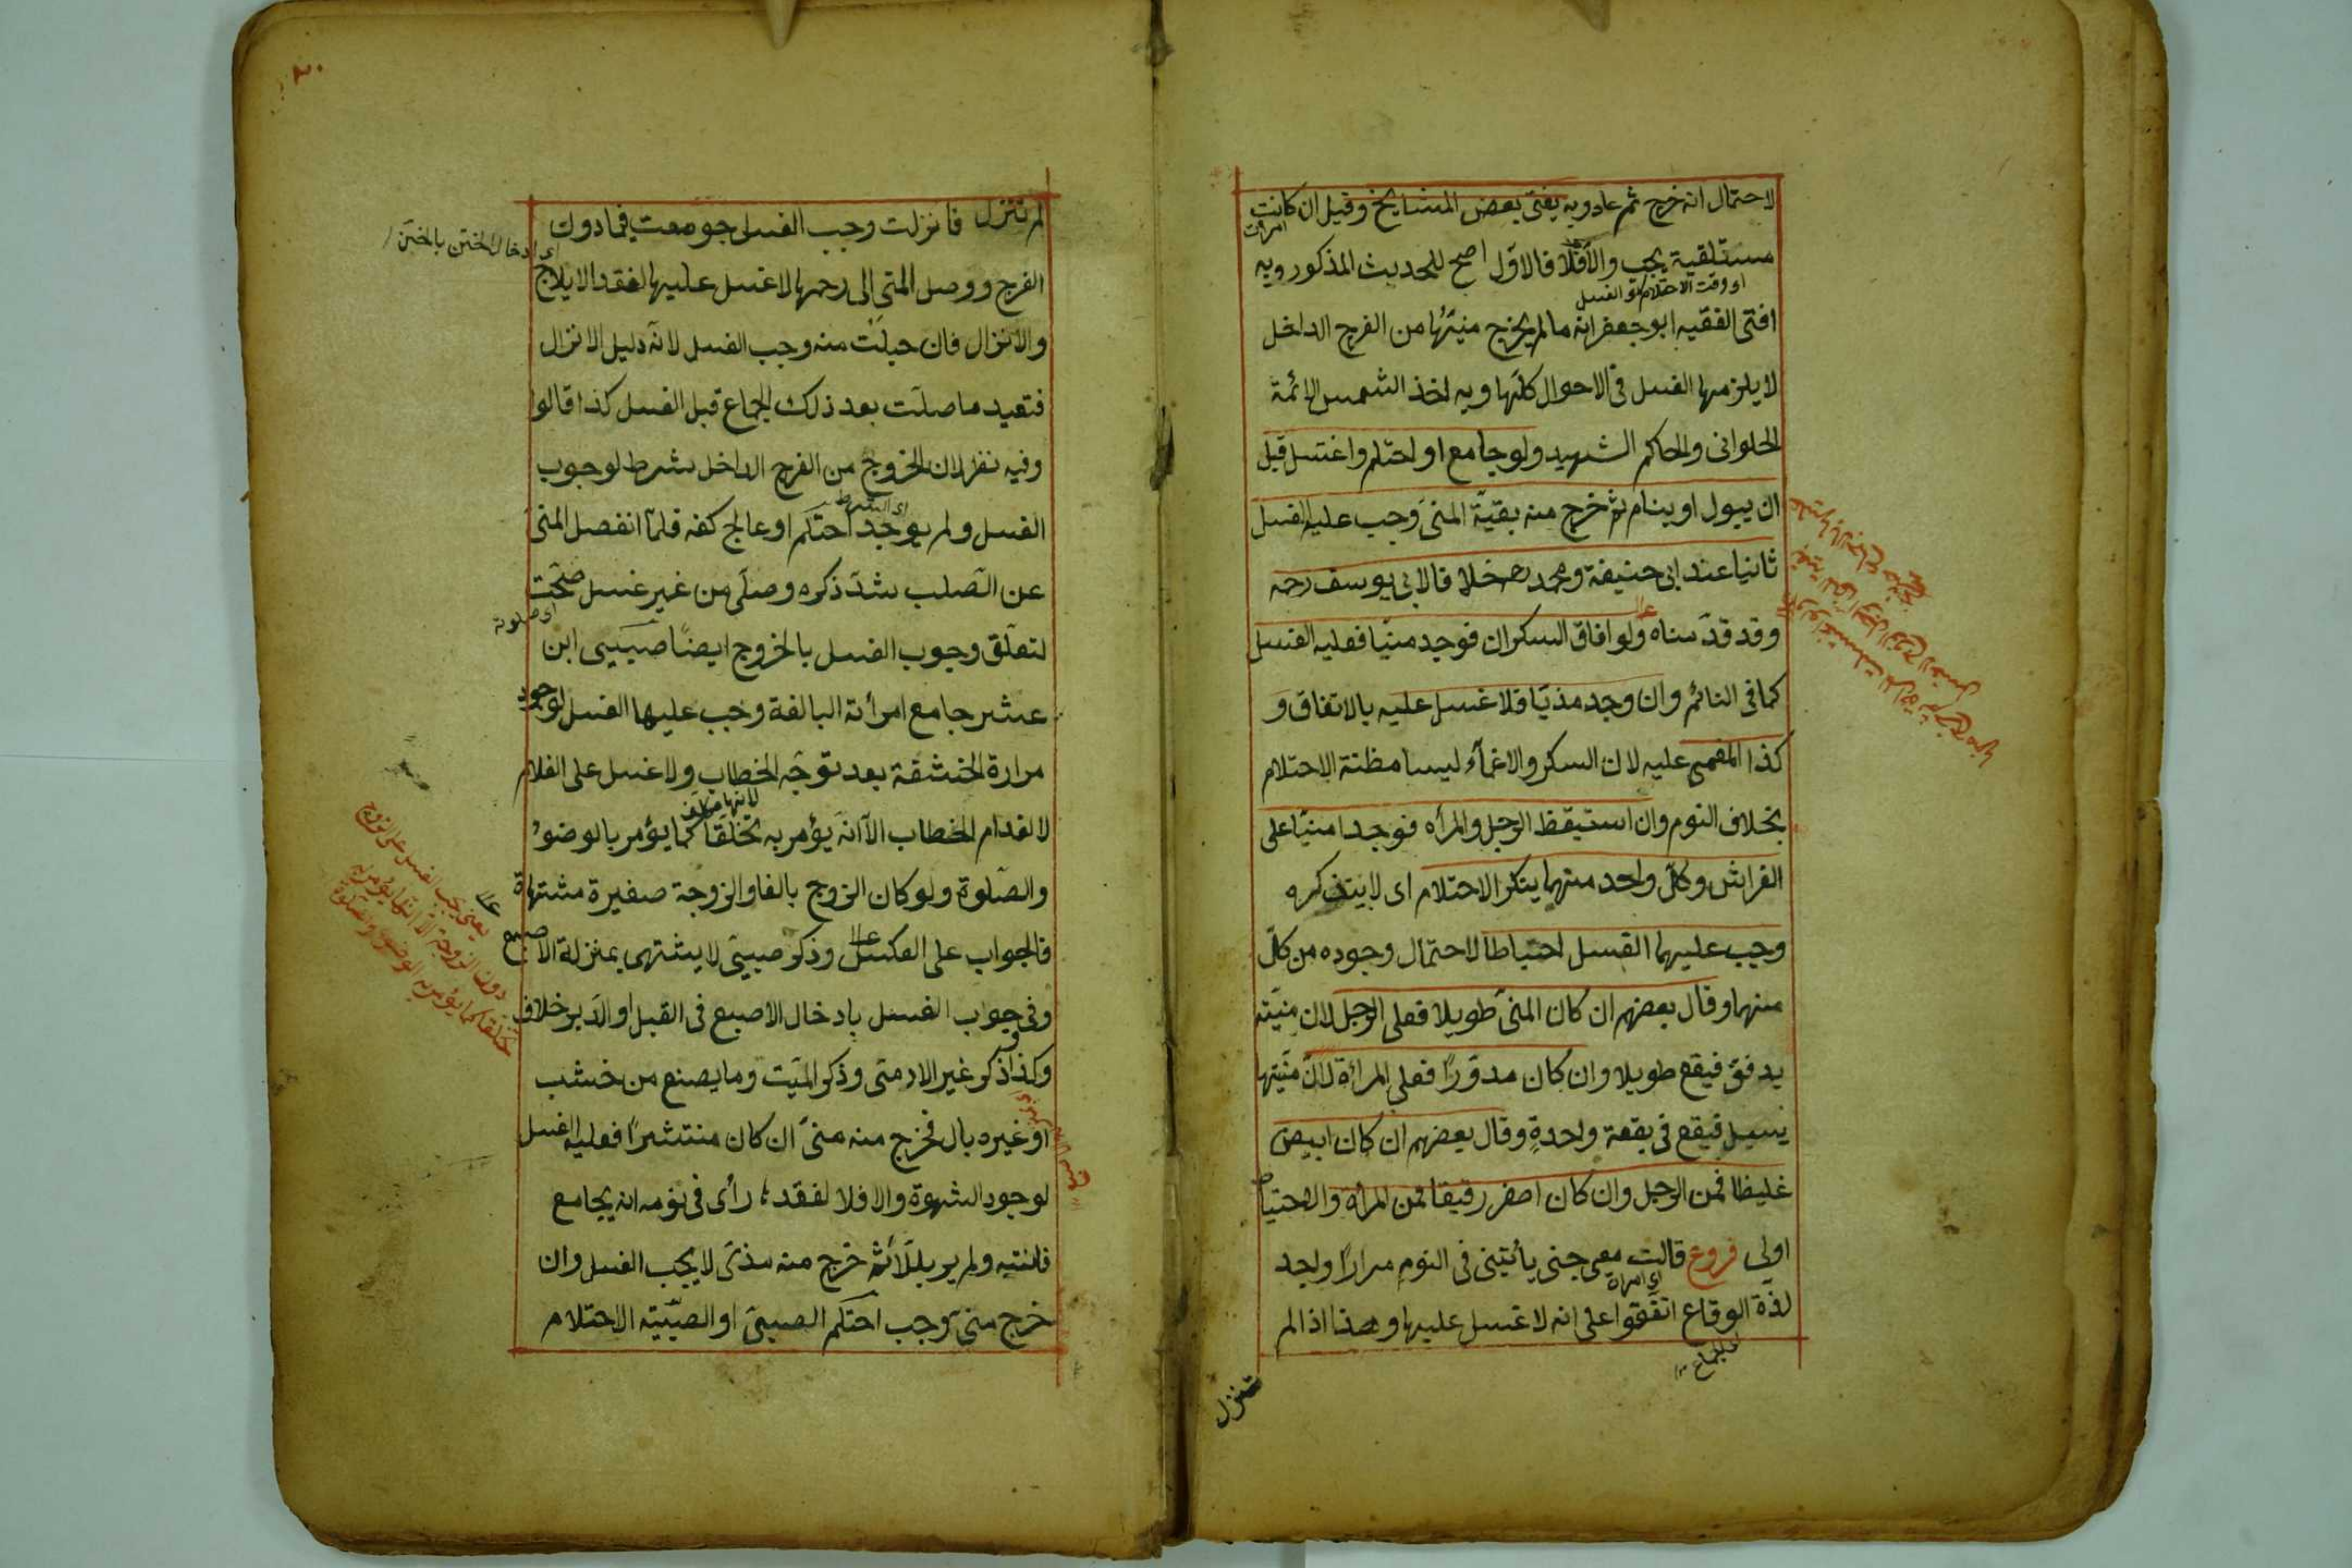 لاحتمال انه خرج ثم عاد وبه يفتى بعض المشايخ وقيل ان كانت
امرأت
مستلقية يجب والآ فلا فالاوّل اصح للحديث المذكور وبه
اى وقت الاحتلام الغسل
افتى الفقيه ابو جعفر انه ما لم يخرج منيّها من الفرج الداخل
لا يلزمها الغسل فى الاحوال كلّها وبه اخذ الشمس الائمة
الحلوانى والحاكم الشهيد ولو جامع او احتلم واغتسل قبل
ان يبول او ينام ثم خرج منه بقيّة المنى وجب عليه الغسل
ثانيا عند ابى حنيفة ومحمد رح خلافا لابى يوسف رحه
وقد قدّمناه ولو افاق السكران فوجد منيّا فعليه الغسل
كما فى النائم وان وجد مذيّا فلا غسل عليه بالاتفاق و
كذا المغمى عليه لان السكر والاغمآء ليسا مظنة الاحتلام
بخلاف النوم وان استيقظ الرجل والمرأه فوجدا منيّا على
الفراش وكلّ واحد منهما ينكر الاحتلام اى لا يتذكره
وجب عليهما الغسل احتياطا لاحتمال وجوده من كلّ
منهما وقال بعضهم ان كان المنىّ طويلا فعلى الرجل لان منيّه
يدفق فيقع طويلا وان كان مدوّرًا فعلى المرأة لانّ منيّها
يسيل فيقع فى بقعة واحدةٍ وقال بعضهم ان كان ابيض
غليظا فمن الرجل وان كان اصفر رقيقا فمن المرأه والاحتياط
اولى فروع قالت معى جنى يأتينى فى النوم مرارًا واجد
اى امرأة
لذّة الوقاع اتفقوا على انه لا غسل عليها وهذا اذا لم
الجماع
تنزل
لم تنزل فانزلت وجب الغسل جومعت فيما دون
اى ادخال الختن بالختن
الفرج ووصل المنى الى رحمها لا غسل عليها لفقد الايلاج
والانزال فان حبلت منه وجب الغسل لانّه دليل الانزال
فتعيد ما صلّت بعد ذلك الجماع قبل الغسل كذا قالوا
وفيه نظر لان الخروج من الفرج الداخل شرط لوجوب
اى الشرط
الغسل ولم يوجد احتلم او عالج كفه فلمّا انفصل المنى
عن الصّلب شدّ ذكره وصلّى من غير غسل صحّت
اى صلوته
لتعلّق وجوب الغسل بالخروج ايضًا صبيى ابن
عشر جامع امرأته البالغة وجب عليها الغسل لوجود
مرارة الحشفة بعد توجّه الخطاب ولا غسل على الغلام
لانعدام الخطاب الآ انّه يؤمر به تخلّقا كما يؤمر بالوضوء
والصّلوة ولو كان الزوج بالغا والزوجة صغيرة مشتهاة
فالجواب على العكس وذكر صبيىّ لا يشتهى بمنزلة الاصبع
وفى جواب الغسل بادخال الاصبع فى القبل او الدّبر خلاف
وكذا ذكر غير الادمتى وذكر الميّت وما يصنع من خشب
او غيره بال فخرج منه منىّ ان كان منتشرًا فعليه الغسل
لوجود الشهوة والا فلا لفقد رأى فى نومه انه يجامع
فانتبه ولم ير بللًا ثم خرج منه مذى لا يجب الغسل وان
خرج منىّ وجب احتلم الصبىّ او الصّبيّة الاحتلام
يعنى يجب الغسل على الزوج
دون الزوجة الا انها يؤمر به
تخلقا كما يؤمر به الوضوء والصلوة